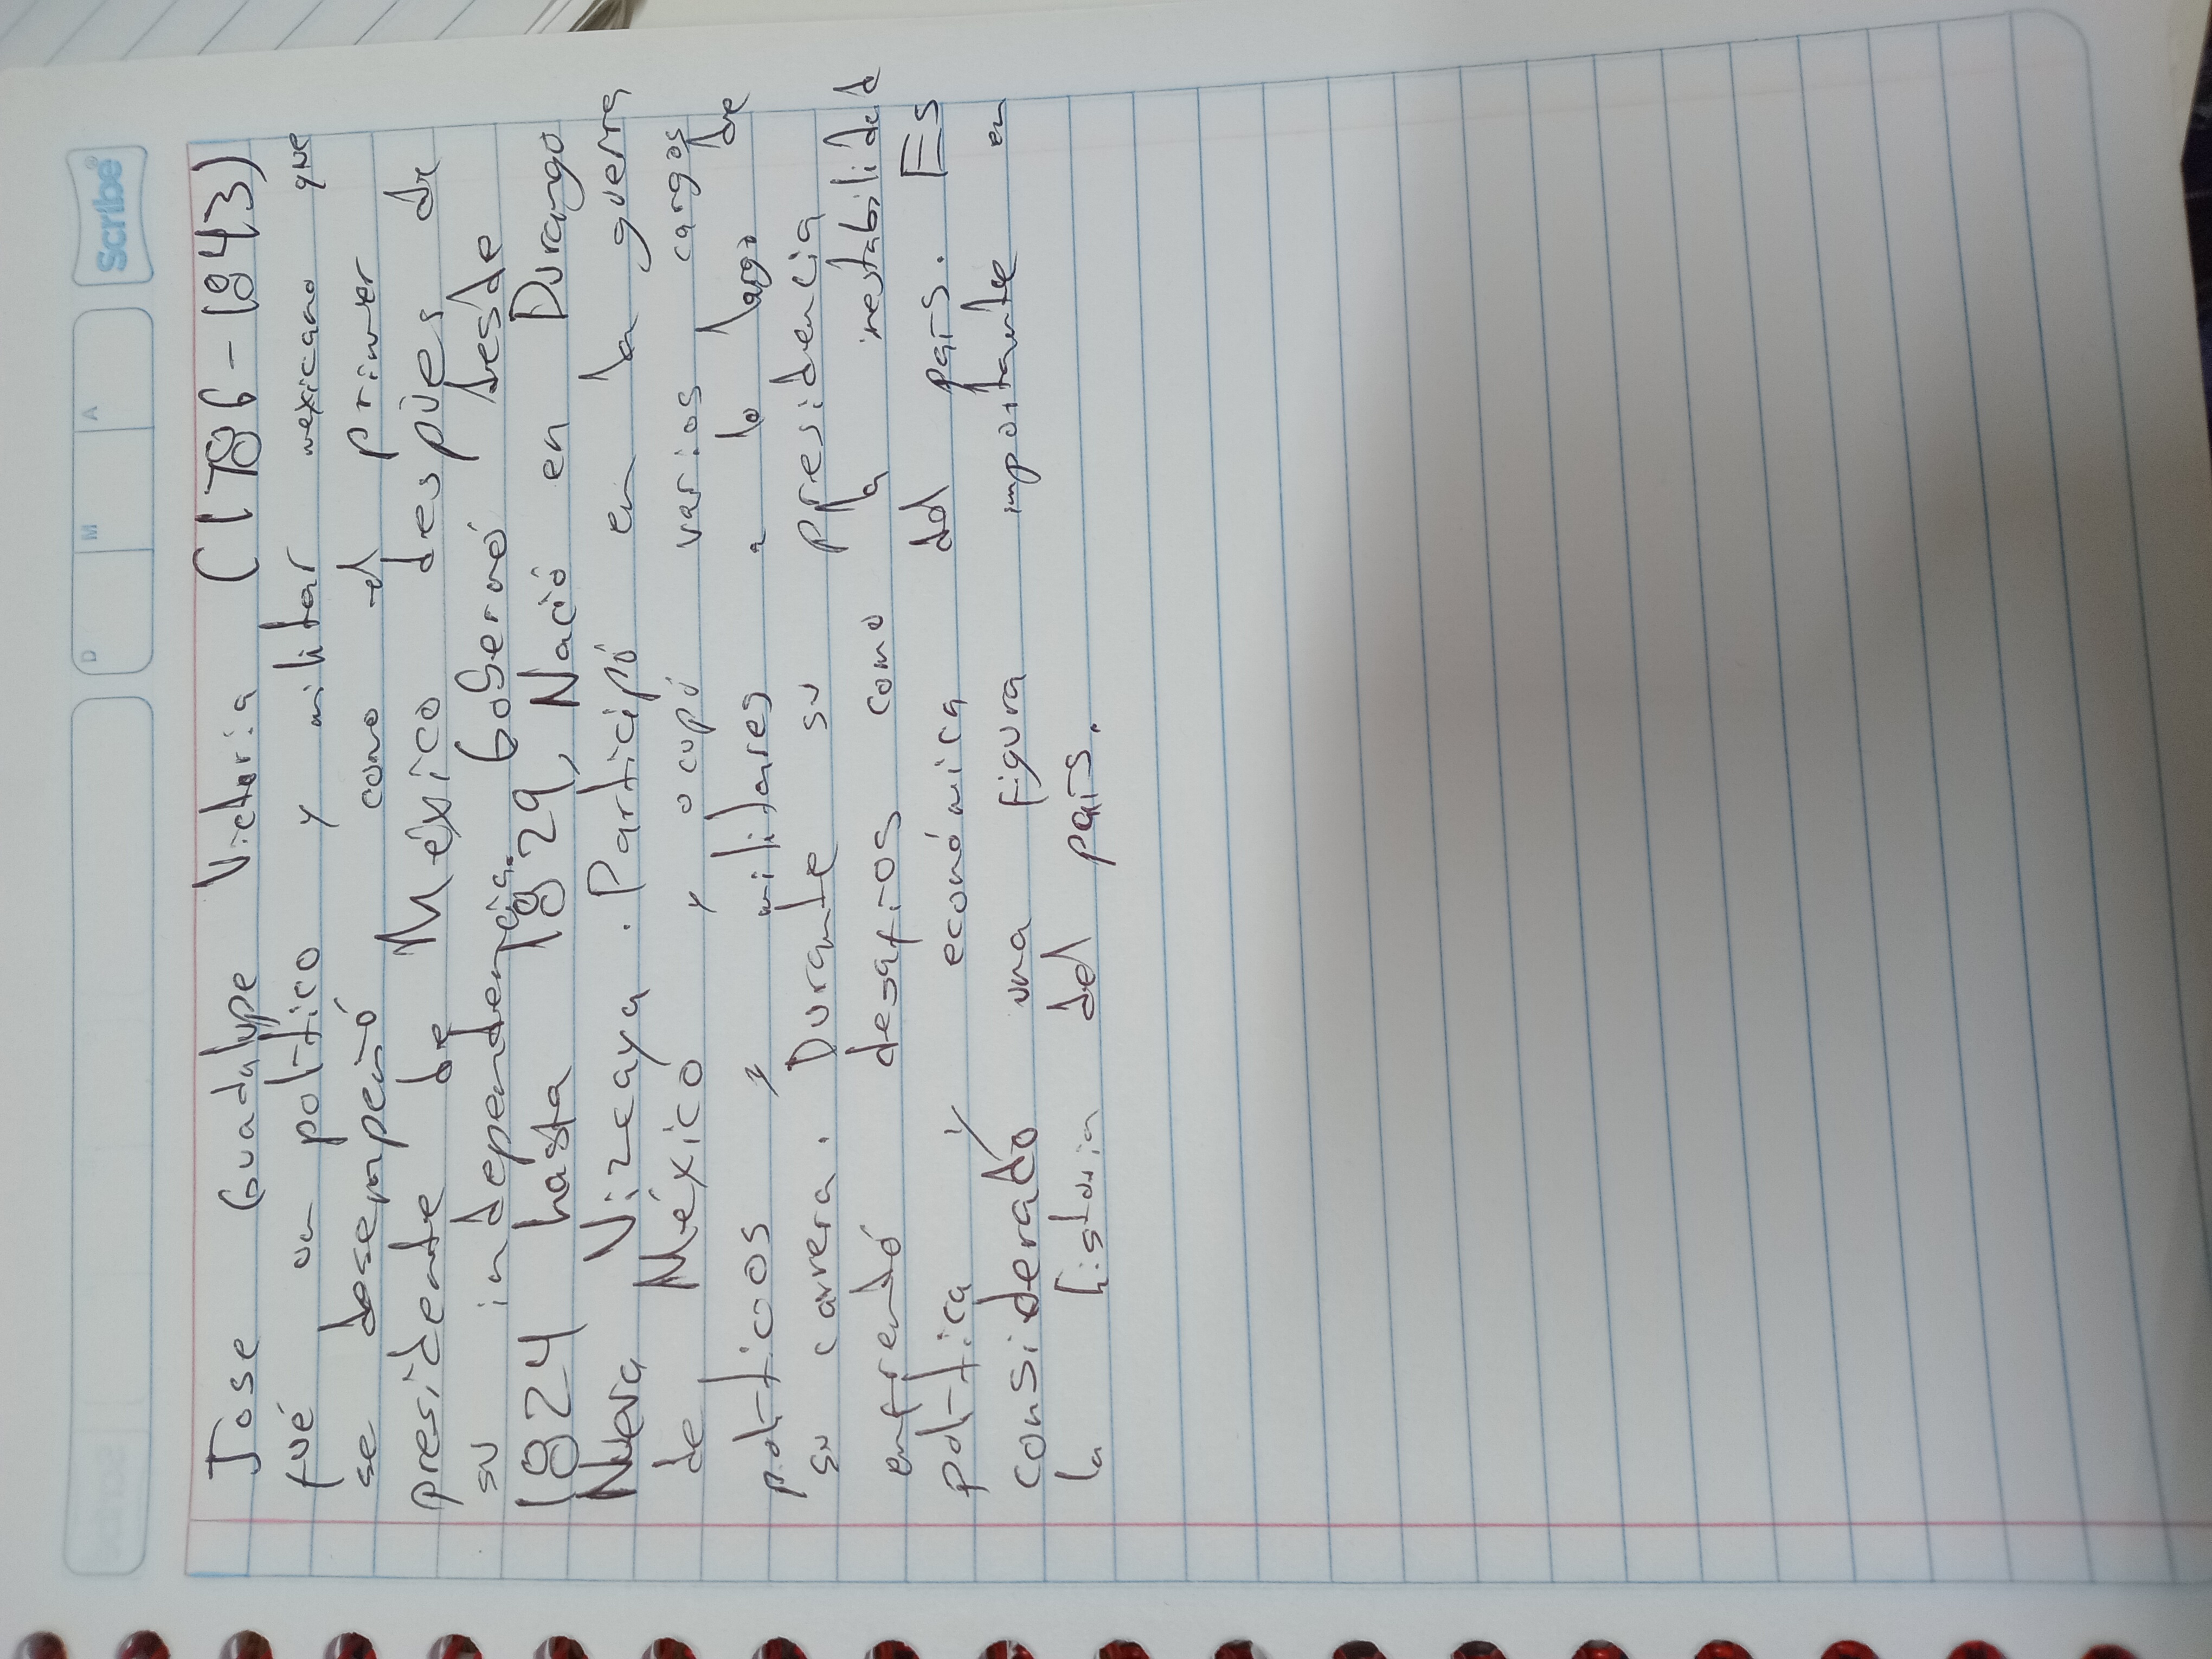 Scribe®
D M A
Jose Guadalupe Victoria (1786-1843)
fué un político y militar mexicano que
se desempeñó como el primer
presidente de México despúes de
su independencia. Goberno desde
1824 hasta 1829, Nació en Durango
Nueva Vizcaya. Participó en la guerra
de México y ocupó varios cargos
políticos y militares a lo largo de
su carrera. Durante su presidencia
enfrentó desafíos como la inestabilidad
política y económica del país. Es
considerado una figura importante en
la historia del país.